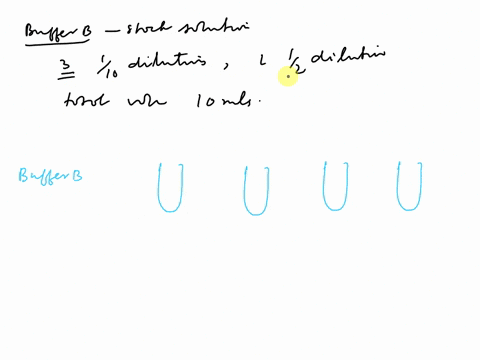 Buffer B - stock solution
3 1/10 dilutions, 1 1/2 dilution
total vol 10 mls.
Buffer B